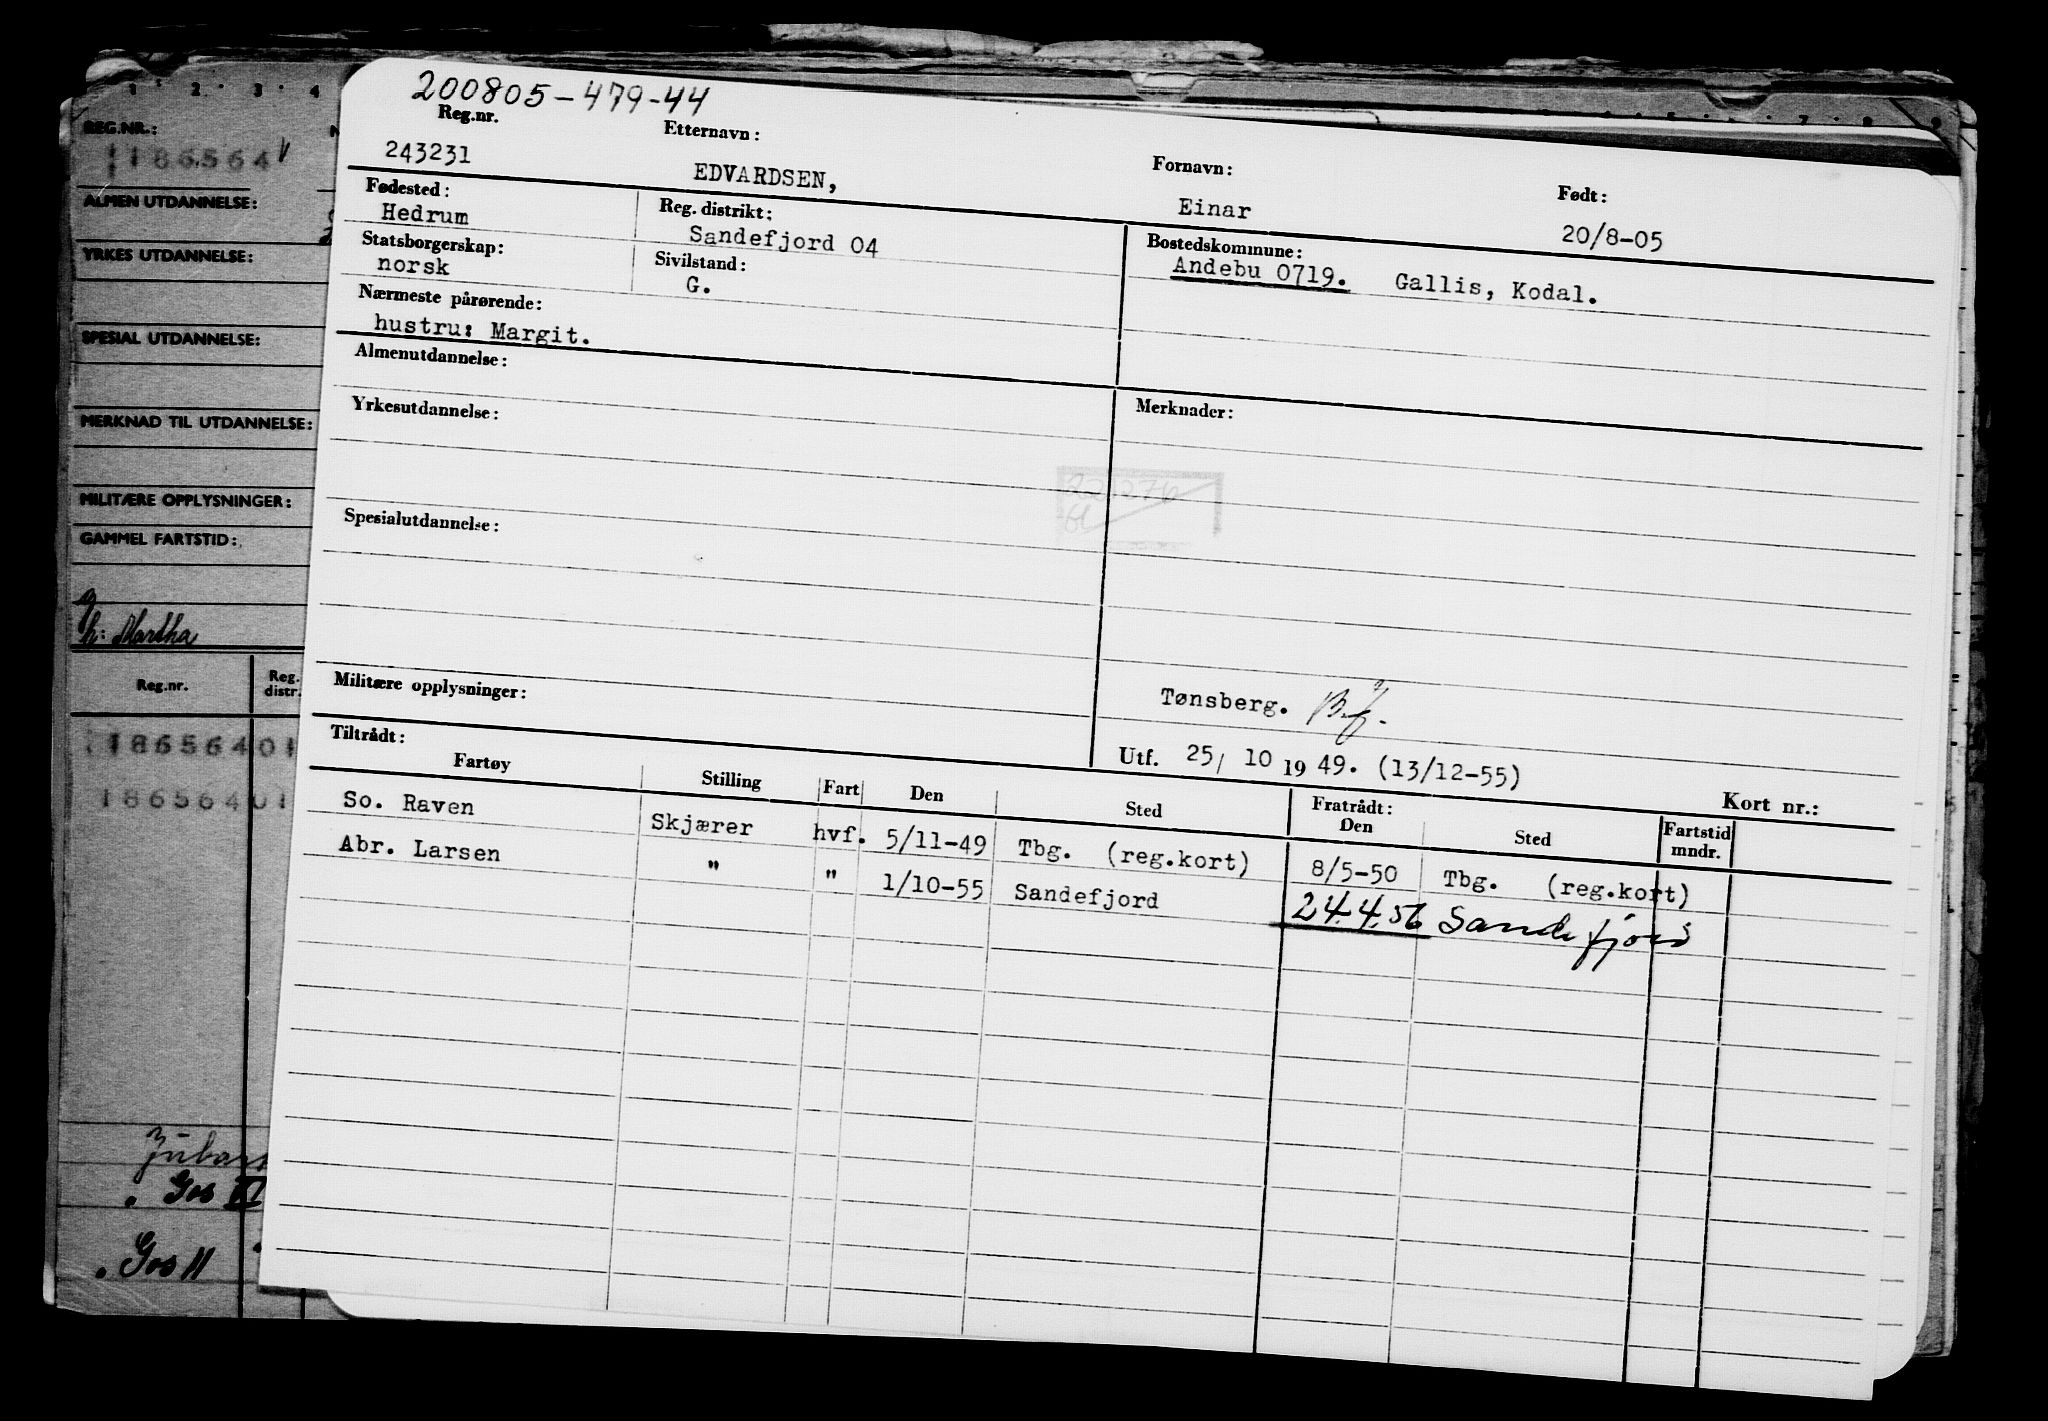 200805-479-44
Reg.nr. Etternavn: Fornavn: Født:
243231 EDVARDSEN, Einar 20/8-05
Fødested: Reg. distrikt: Bostedskommune:
Hedrum Sandefjord 04 Andebu 0719. Gallis, Kodal.
Statsborgerskap: Sivilstand:
norsk G.
Nærmeste pårørende:
hustru: Margit.
Almenutdannelse:
Yrkesutdannelse: Merknader:
Spesialutdannelse:
Militære opplysninger: Tønsberg.
Utf. 25/ 10 19 49. (13/12-55)
Tiltrådt: Fratrådt: Kort nr.:
Fartøy Stilling Fart Den Sted Den Sted Fartstid mndr.
So. Raven Skjærer hvf. 5/11-49 Tbg. (reg.kort) 8/5-50 Tbg. (reg.kort)
Abr. Larsen " " 1/10-55 Sandefjord 24.4.56 Sandefjord
1 2 3 4
REG.NR.:
186564
ALMEN UTDANNELSE:
YRKES UTDANNELSE:
SPESIAL UTDANNELSE:
MERKNAD TIL UTDANNELSE:
MILITÆRE OPPLYSNINGER:
GAMMEL FARTSTID:
h: Martha
Reg.nr. Reg. distr.
186564 01
186564 01
Gos VI
Gos II
7 8 9